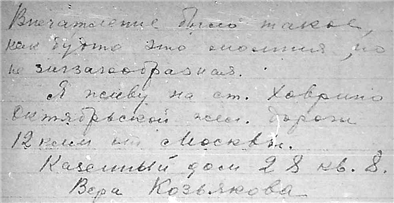 Впечатление было такое,
как будто это молния, но
не зигзагообразная.
Я живу на ст. Ховрино
Октябрьской жел. дороги
12 клм от Москвы.
Казенный дом 28 кв. 8.
Вера Козьякова